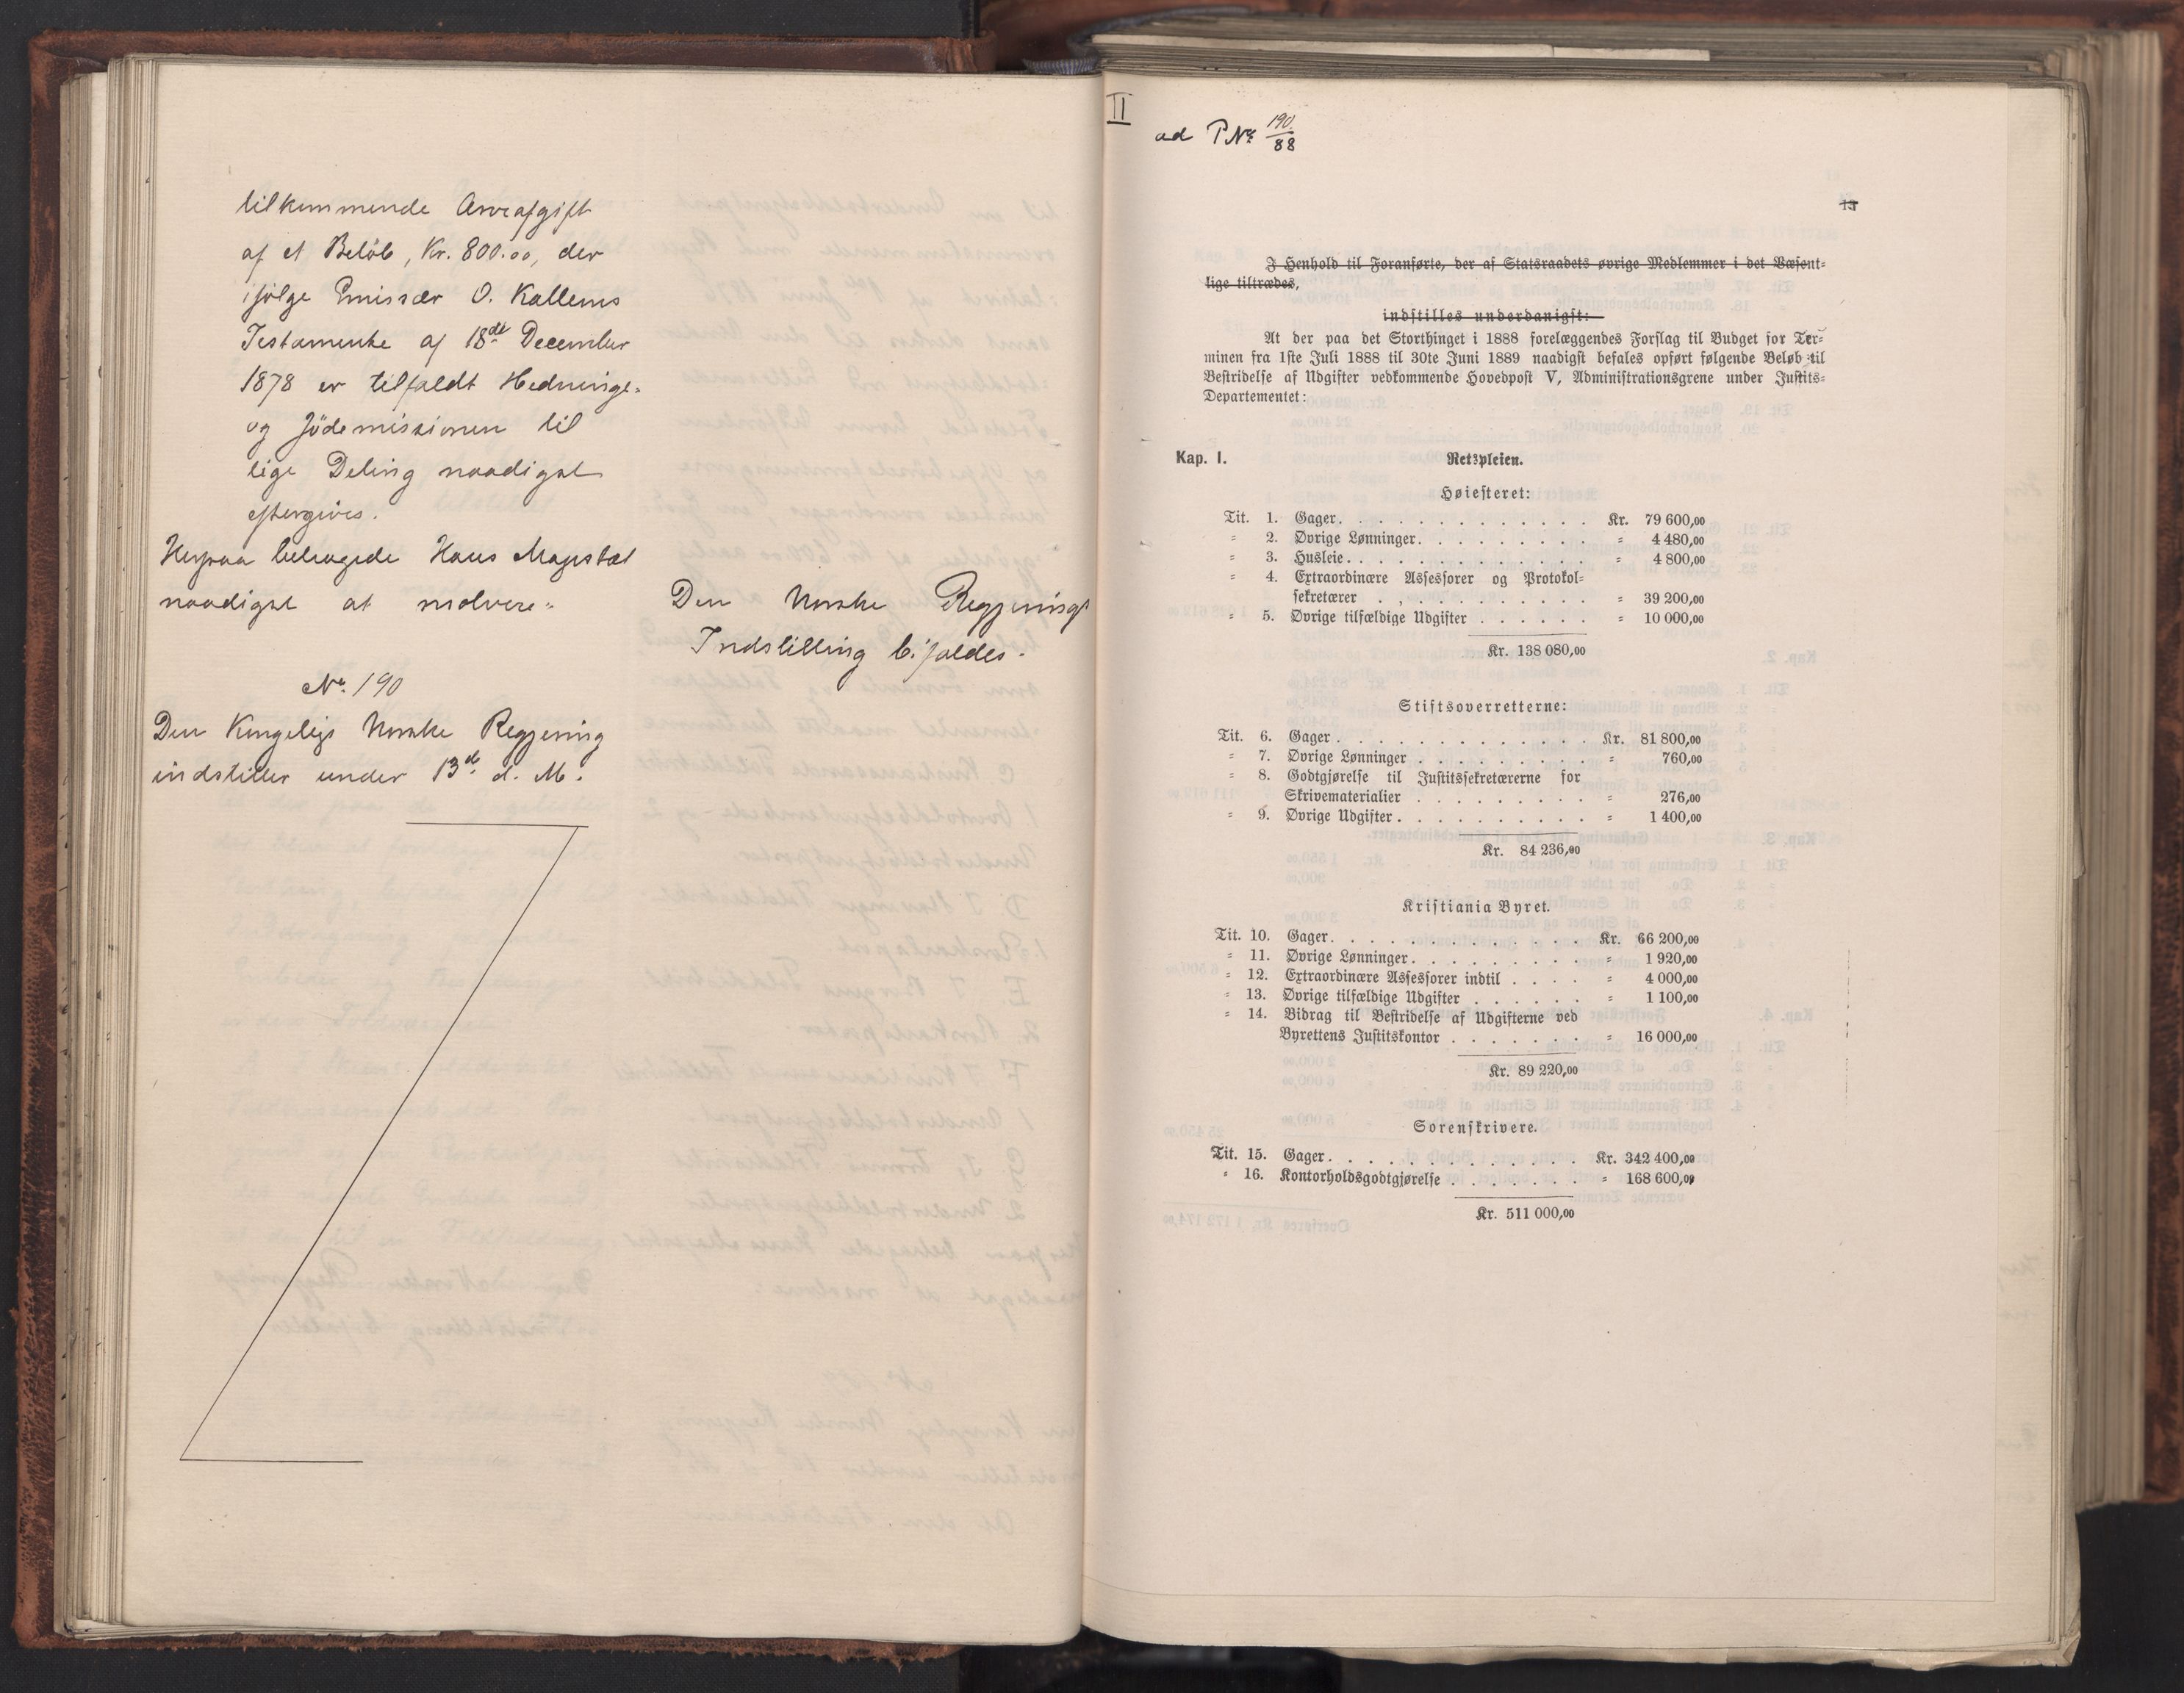 tilkommende Arveafgift
af et Beløb, Kr. 800.00, der
ifølge Emissær O. Kallems
Testamente af 18de December
1878 er tilfaldt Hedninge-
og Jødemissionen til
lige Deling naadigst
eftergives.
Herpaa behagede Hans Majestæt
naadigst at resolvere:
Den Norske Regjerings
Indstilling bifaldes.
No. 190
Den Kongelige Norske Regjering
indstiller under 13de d. M.
II
ad P No. 190/88
13
I Henhold til Foranførte, der af Statsraadets øvrige Medlemmer i det Væsent-
lige tiltrædes,
indstilles underdanigst:
At der paa det Storthinget i 1888 forelæggendes Forslag til Budget for Ter-
minen fra 1ste Juli 1888 til 30te Juni 1889 naadigst befales opført følgende Beløb til
Bestridelse af Udgifter vedkommende Hovedpost V, Administrationsgrene under Justits-
Departementet:
Kap. 1. Retspleien.
Høiesteret:
Tit. 1. Gager. . . . . . . . . . . . . Kr. 79 600,00
" 2. Øvrige Lønninger. . . . . . . . . " 4 480,00
" 3. Husleie. . . . . . . . . . . . . " 4 800,00
" 4. Extraordinære Assessorer og Protokol-
sekretærer . . . . . . . . . . . " 39 200,00
" 5. Øvrige tilfældige Udgifter . . . . . . " 10 000,00
Kr. 138 080,00
Stiftsoverretterne:
Tit. 6. Gager . . . . . . . . . . . . . Kr. 81 800,00
" 7. Øvrige Lønninger . . . . . . . . . " 760,00
" 8. Godtgjørelse til Justitssekretærerne for
Skrivematerialier . . . . . . . . . " 276,00
" 9. Øvrige Udgifter. . . . . . . . . . " 1 400,00
Kr. 84 236,00
Kristiania Byret.
Tit. 10. Gager. . . . . . . . . . . . . Kr. 66 200,00
" 11. Øvrige Lønninger. . . . . . . . . " 1 920,00
" 12. Extraordinære Assessorer indtil . . . . " 4 000,00
" 13. Øvrige tilfældige Udgifter . . . . . . " 1 100,00
" 14. Bidrag til Bestridelse af Udgifterne ved
Byrettens Justitskontor . . . . . . . " 16 000,00
Kr. 89 220,00
Sorenskrivere.
Tit. 15. Gager. . . . . . . . . . . . . Kr. 342 400,00
" 16. Kontorholdsgodtgjørelse . . . . . . . " 168 600,00
Kr. 511 000,00